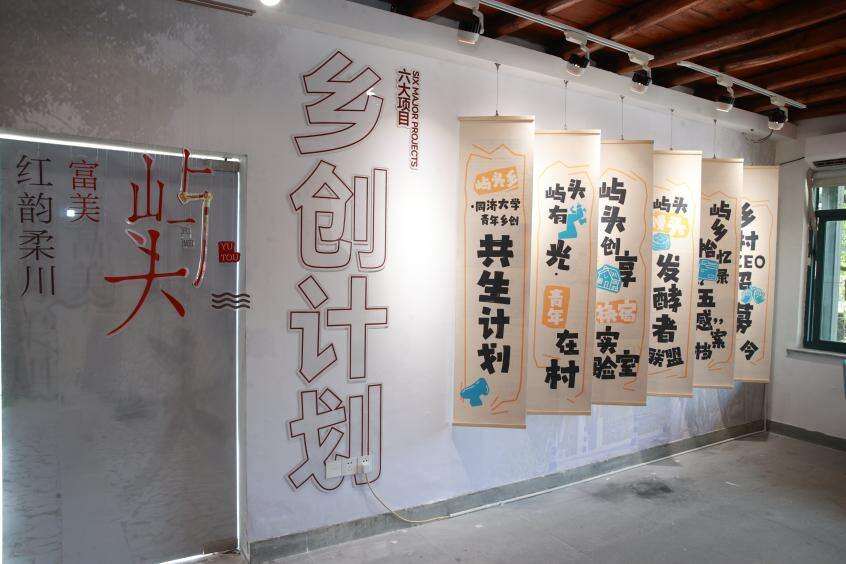 红韵柔川
富美
屿头
YU
TOU
乡创计划
六大项目
SIX MAJOR PROJECTS
屿头乡
·同济大学
青年乡创
共生计划
屿头
有光·
青年
在村
屿头
创享
实验室
屿头
发酵者
联盟
屿乡
拾忆录
五感
档案
乡村
CEO
招募令